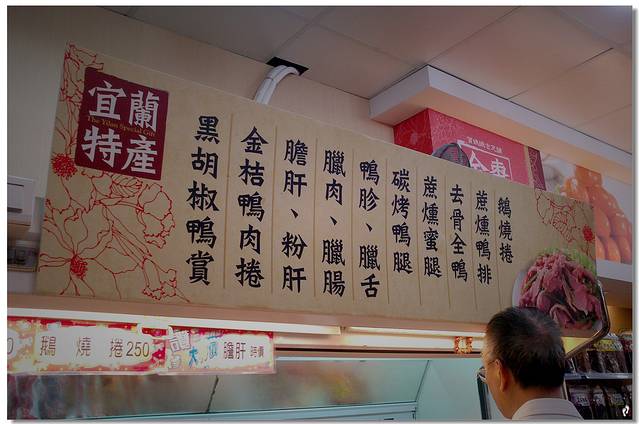 宜蘭
特產
The Yilan Special Gift
黑胡椒鴨賞
金桔鴨肉捲
膽肝、粉肝
臘肉、臘腸
鴨胗、臘舌
碳烤鴨腿
蔗燻蜜腿
去骨全鴨
蔗燻鴨排
鵝燒捲
金棗
0 鵝 燒 捲 250
膽肝 時價